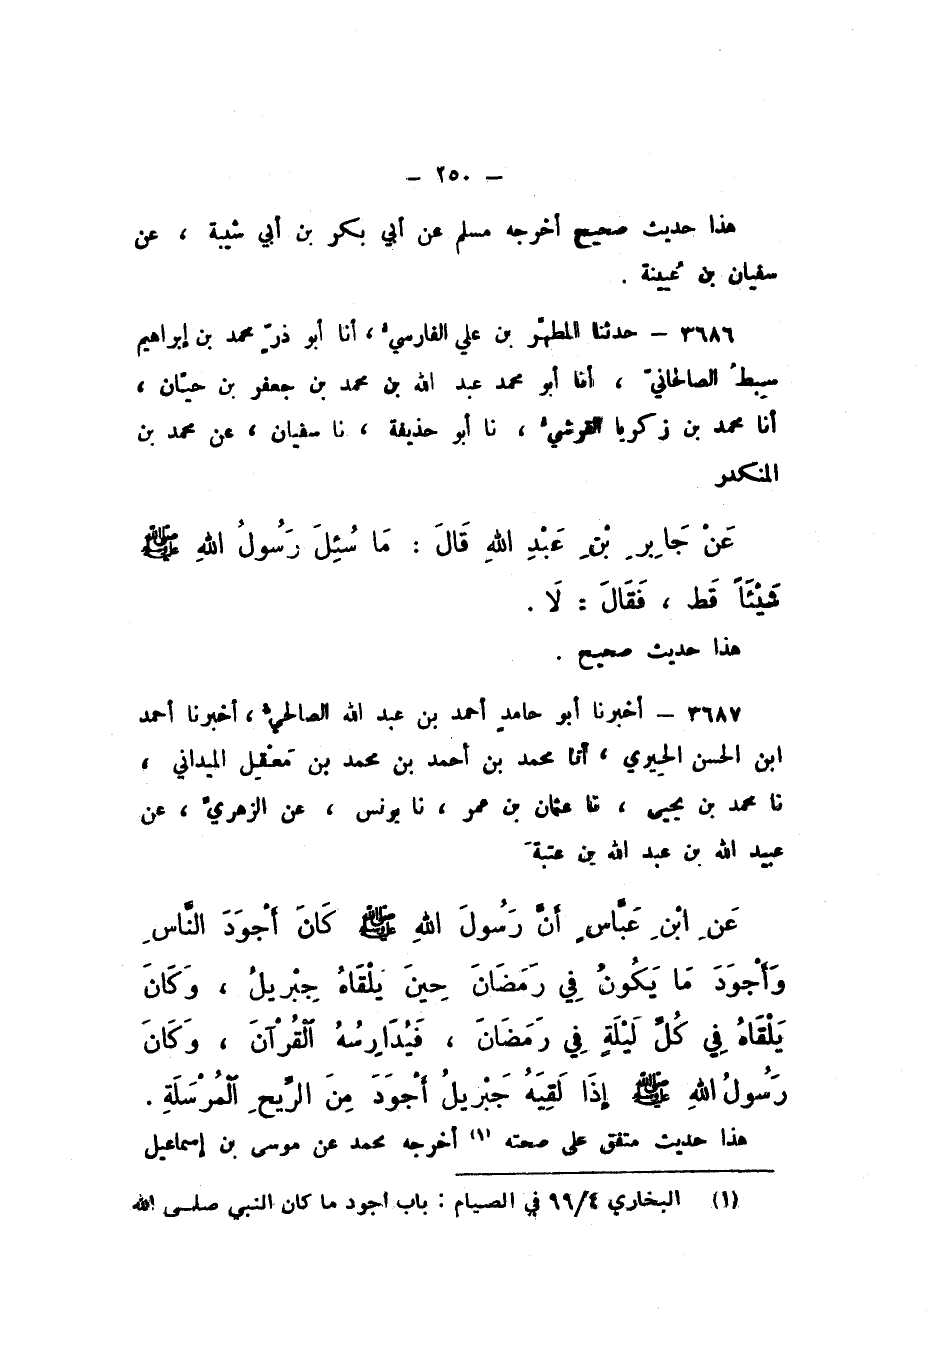 — ٢٥٠ —
هذا حديث صحيح أخرجه مسلم عن أبي بكر بن أبي شيبة ، عن
سفيان بن عُيينة .
٣٦٨٦ — حدثنا المطهّر بن علي الفارسيُّ ، أنا أبو ذرّ محمد بن إبراهيم
سبطُ الصالحانيّ ، أنا أبو محمد عبد الله بن محمد بن جعفر بن حيّان ،
أنا محمد بن زكريا القرشيُّ ، نا أبو حذيفة ، نا سفيان ، عن محمد بن
المنكدر
عَنْ جَابِرِ بْنِ عَبْدِ اللهِ قَالَ : مَا سُئِلَ رَسُولُ اللهِ ﷺ
شَيْئَاً قَط ، فَقَالَ : لَا .
هذا حديث صحيح .
٣٦٨٧ — أخبرنا أبو حامدٍ أحمد بن عبد الله الصالحيُّ ، أخبرنا أحمد
ابن الحسن الحيري ، أنا محمد بن أحمد بن محمد بن مَعقِل الميداني ،
نا محمد بن يحيى ، نا عثمان بن عمر ، نا يونس ، عن الزهريّ ، عن
عبيد الله بن عبد الله بن عتبةَ
عَنِ ابْنِ عَبَّاسٍ أَنَّ رَسُولَ اللهِ ﷺ كَانَ أَجْوَدَ النَّاسِ
وَأَجْوَدَ مَا يَكُونُ فِي رَمَضَانَ حِينَ يَلْقَاهُ جِبْرِيلُ ، وَكَانَ
يَلْقَاهُ فِي كُلِّ لَيْلَةٍ فِي رَمَضَانَ ، فَيُدَارِسُهُ الْقُرْآنَ ، وَكَانَ
رَسُولُ اللهِ ﷺ إِذَا لَقِيَهُ جَبْرِيلُ أَجْوَدَ مِنَ الرِّيحِ الْمُرْسَلَةِ .
هذا حديث متفق على صحته (١) أخرجه محمد عن موسى بن إسماعيل
(١) البخاري ٩٩/٤ في الصيام : باب أجود ما كان النبي صلى الله